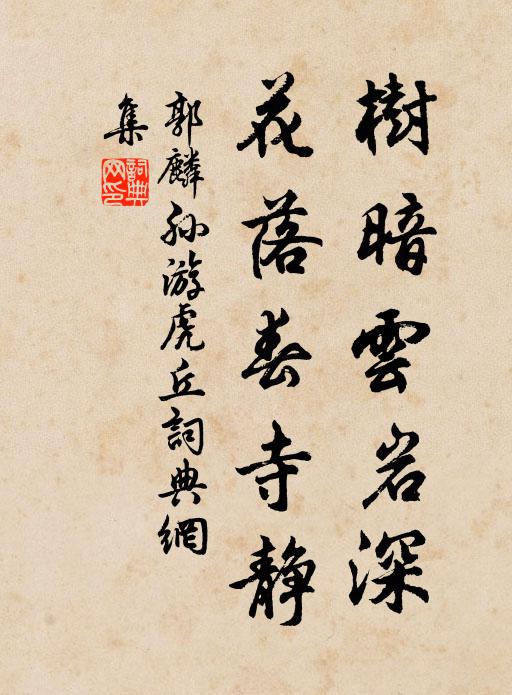 樹暗雲岩深
花落春寺静
郭麟孙游虎丘詞典網
集
詞典網印